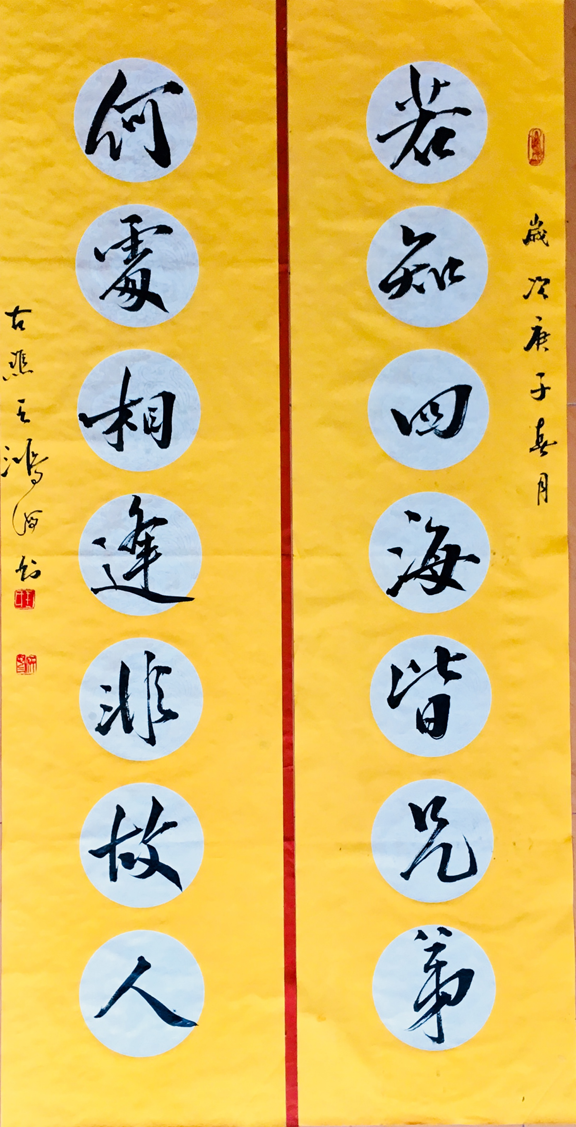 歲次庚子春月
若知四海皆兄弟
何處相逢非故人
古燕王鴻河书